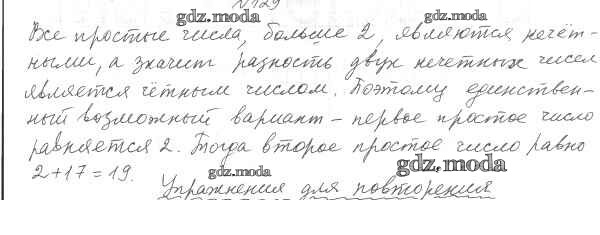 №129
gdz.moda gdz.moda
Все простые числа, больше 2, являются нечёт-
ными, а значит разность двух нечетных чисел
является чётным числом. Поэтому единствен-
ный возможный вариант – первое простое число
равняется 2. Тогда второе простое число равно
gdz.moda gdz.moda
2+17=19.
Упражнения для повторения